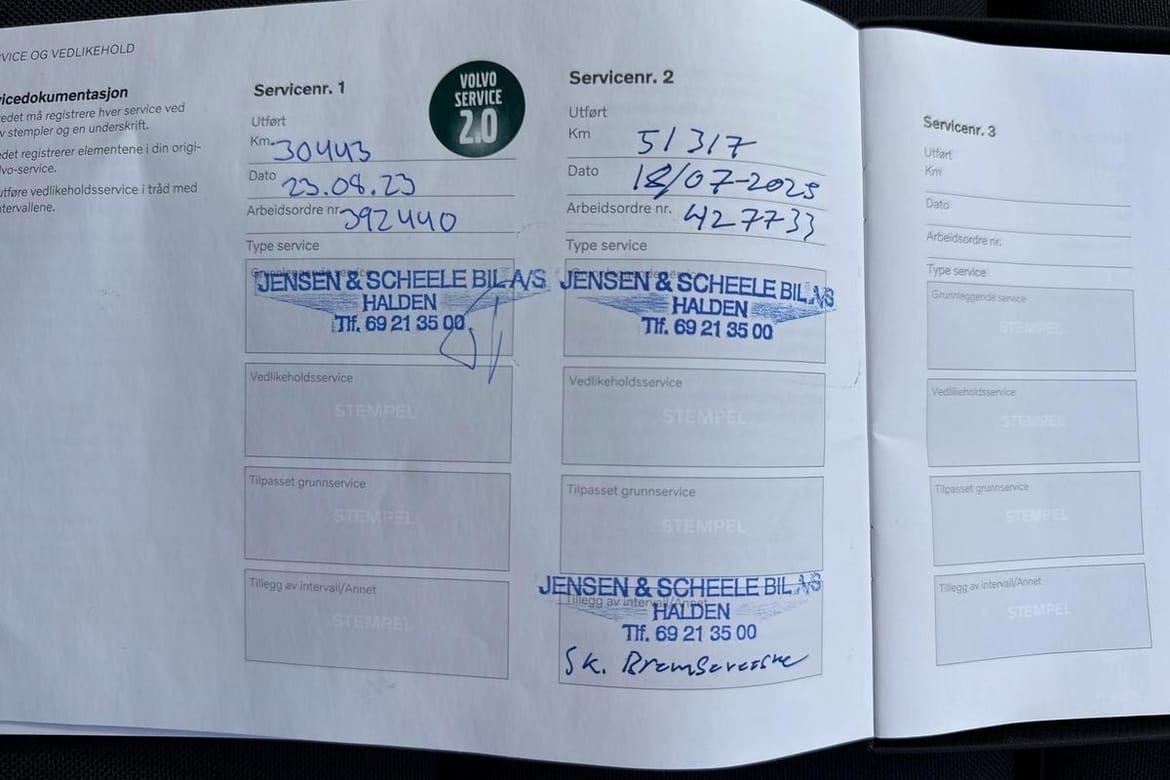 VICE OG VEDLIKEHOLD
icedokumentasjon
edet må registrere hver service ved
v stempler og en underskrift.
edet registrerer elementene i din origi-
lvo-service.
utføre vedlikeholdsservice i tråd med
ntervallene.
Servicenr. 1
VOLVO
SERVICE
2.0
Utført
Km 30443
Dato 23.08.23
Arbeidsordre nr. 392440
Type service
Grunnleggende service
JENSEN & SCHEELE BIL A/S
HALDEN
Tlf. 69 21 35 00
Vedlikeholdsservice
STEMPEL
Tilpasset grunnservice
STEMPEL
Tillegg av intervall/Annet
STEMPEL
Servicenr. 2
Utført
Km 51317
Dato 18/07-2025
Arbeidsordre nr. 427733
Type service
Grunnleggende service
JENSEN & SCHEELE BIL A/S
HALDEN
Tlf. 69 21 35 00
Vedlikeholdsservice
STEMPEL
Tilpasset grunnservice
STEMPEL
JENSEN & SCHEELE BIL A/S
Tillegg av intervall/Annet
HALDEN
Tlf. 69 21 35 00
Sk. Bremsevæske
Servicenr. 3
Utført
Km
Dato
Arbeidsordre nr.
Type service
Grunnleggende service
STEMPEL
Vedlikeholdsservice
STEMPEL
Tilpasset grunnservice
STEMPEL
Tillegg av intervall/Annet
STEMPEL